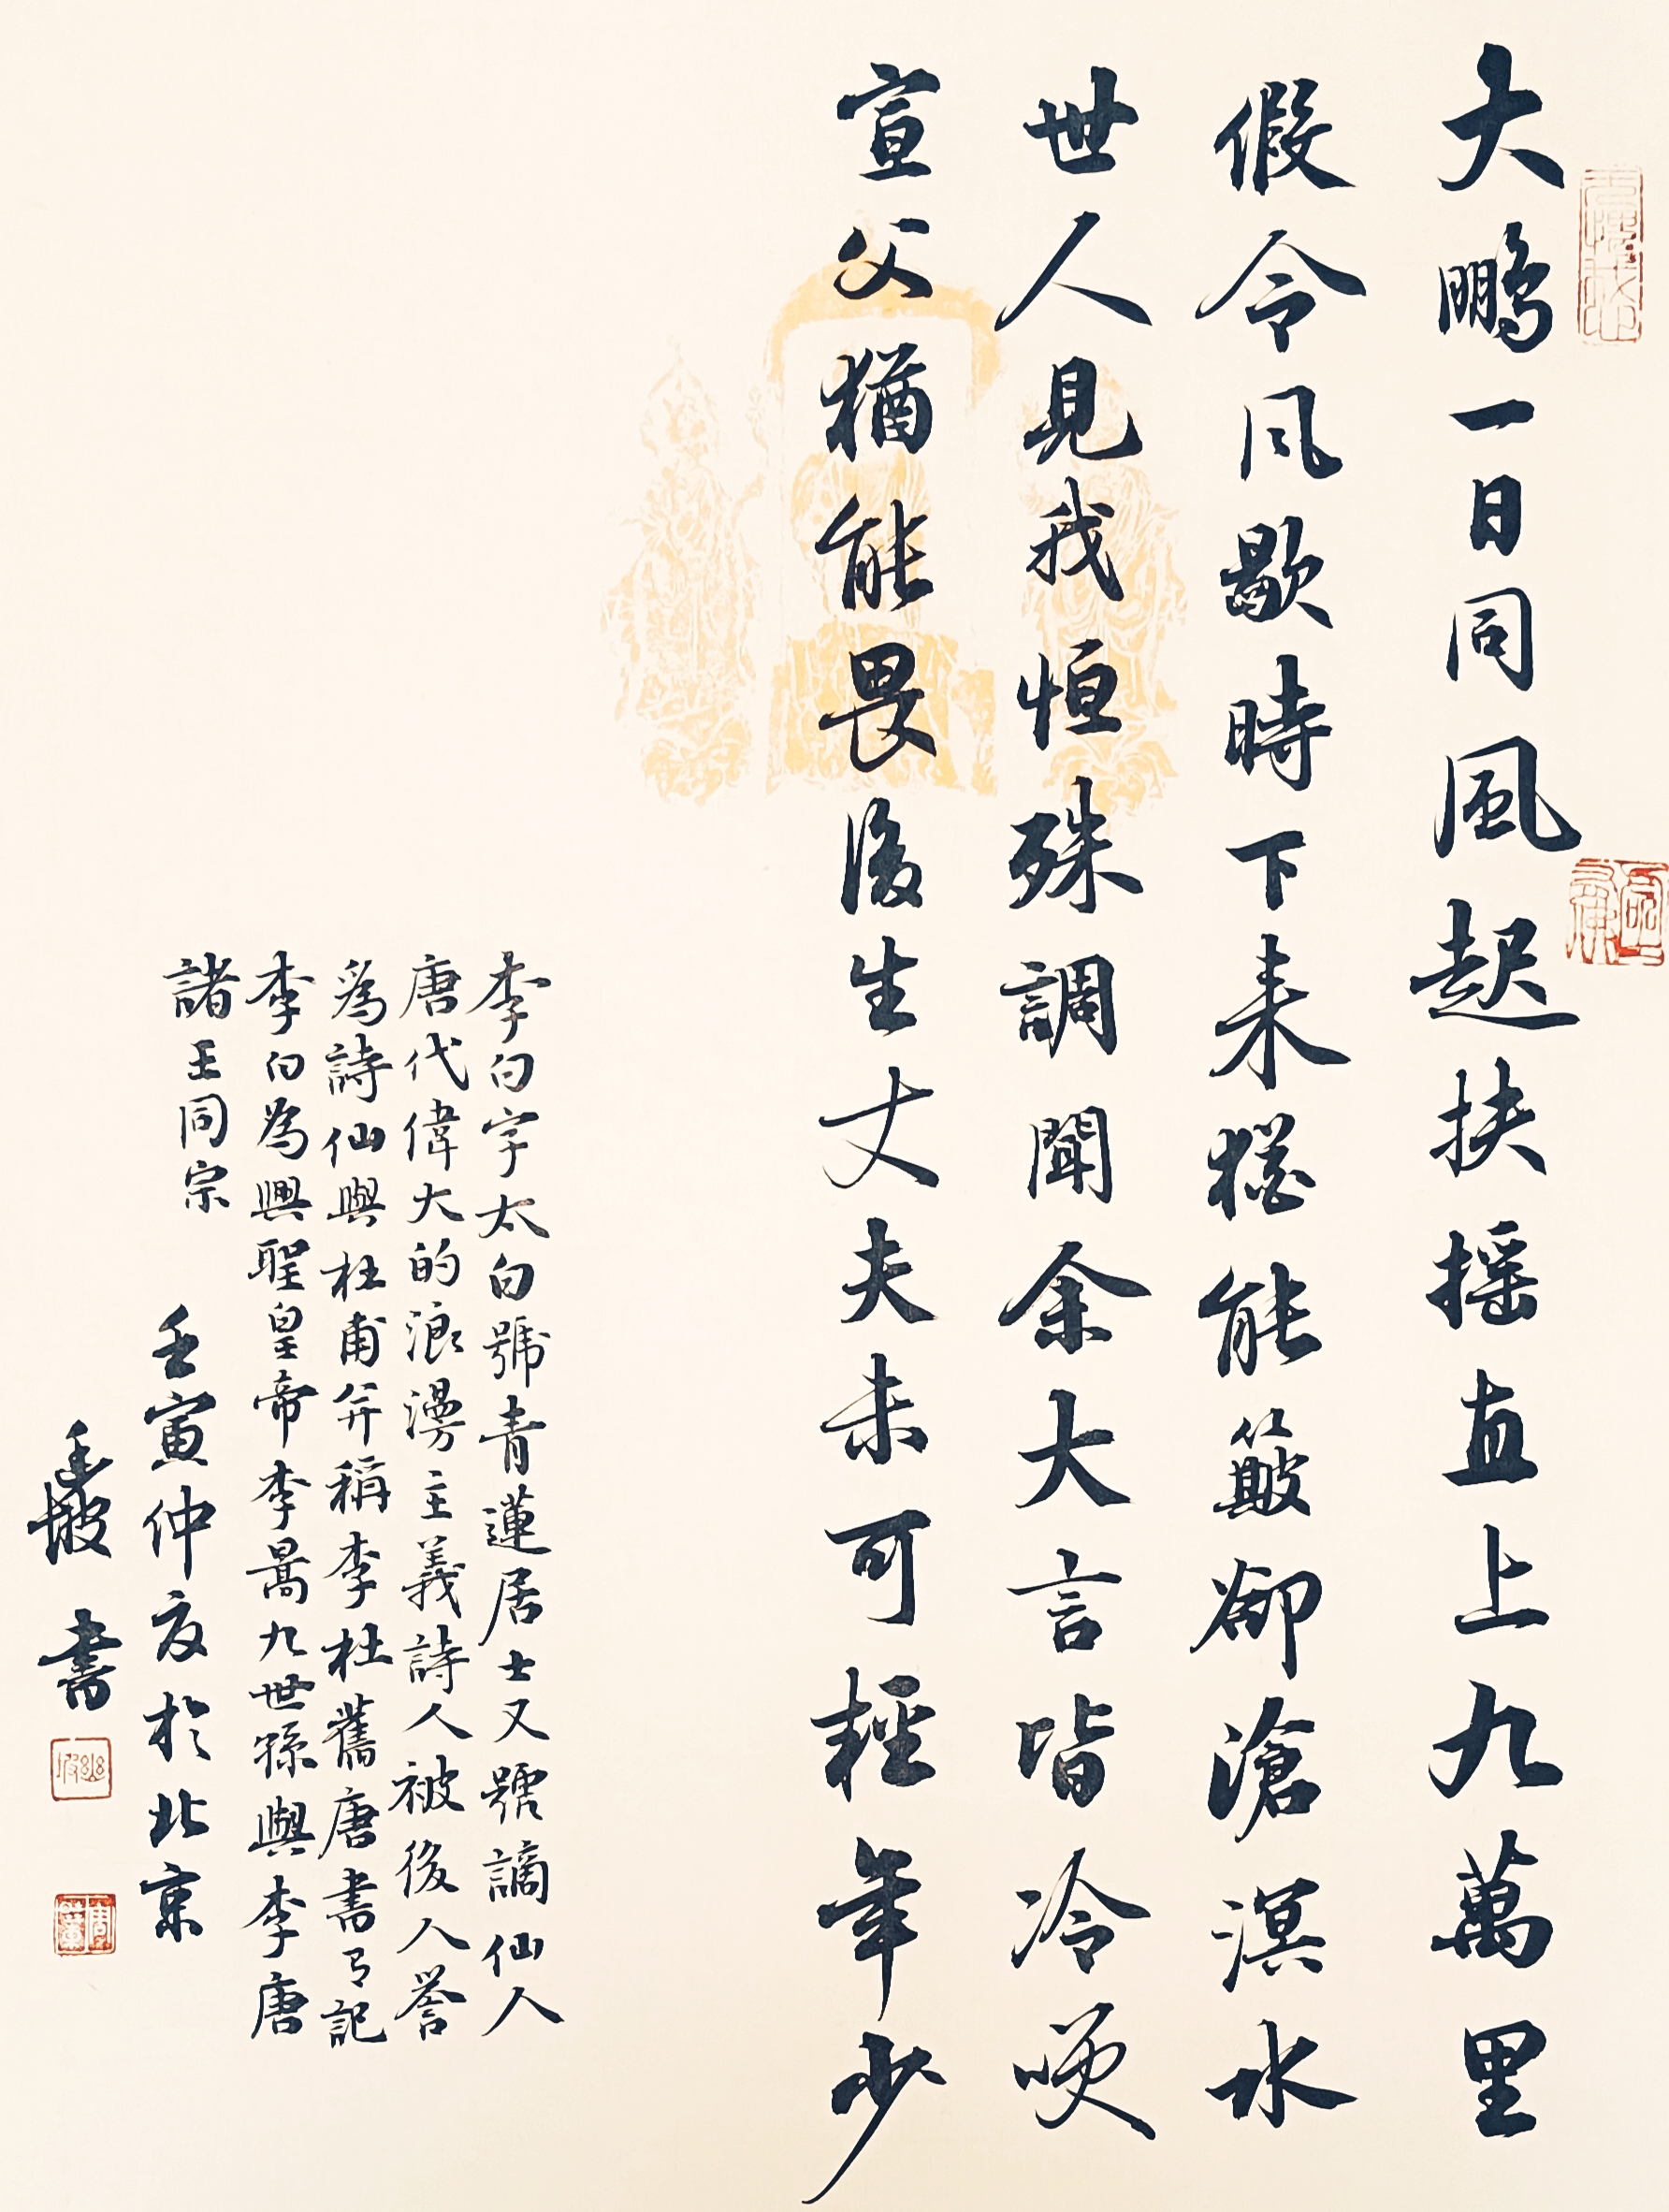 大鵬一日同風起扶摇直上九萬里
假令風歇時下来猶能簸卻滄溟水
世人見我恒殊調聞余大言皆冷咲
宣父猶能畏後生丈夫未可輕年少
李白字太白號青蓮居士又號謫仙人
唐代偉大的浪漫主義詩人被後人譽
爲詩仙與杜甫并稱李杜舊唐書有記
李白為興聖皇帝李暠九世孫與李唐
諸王同宗
壬寅仲夏於北京
書